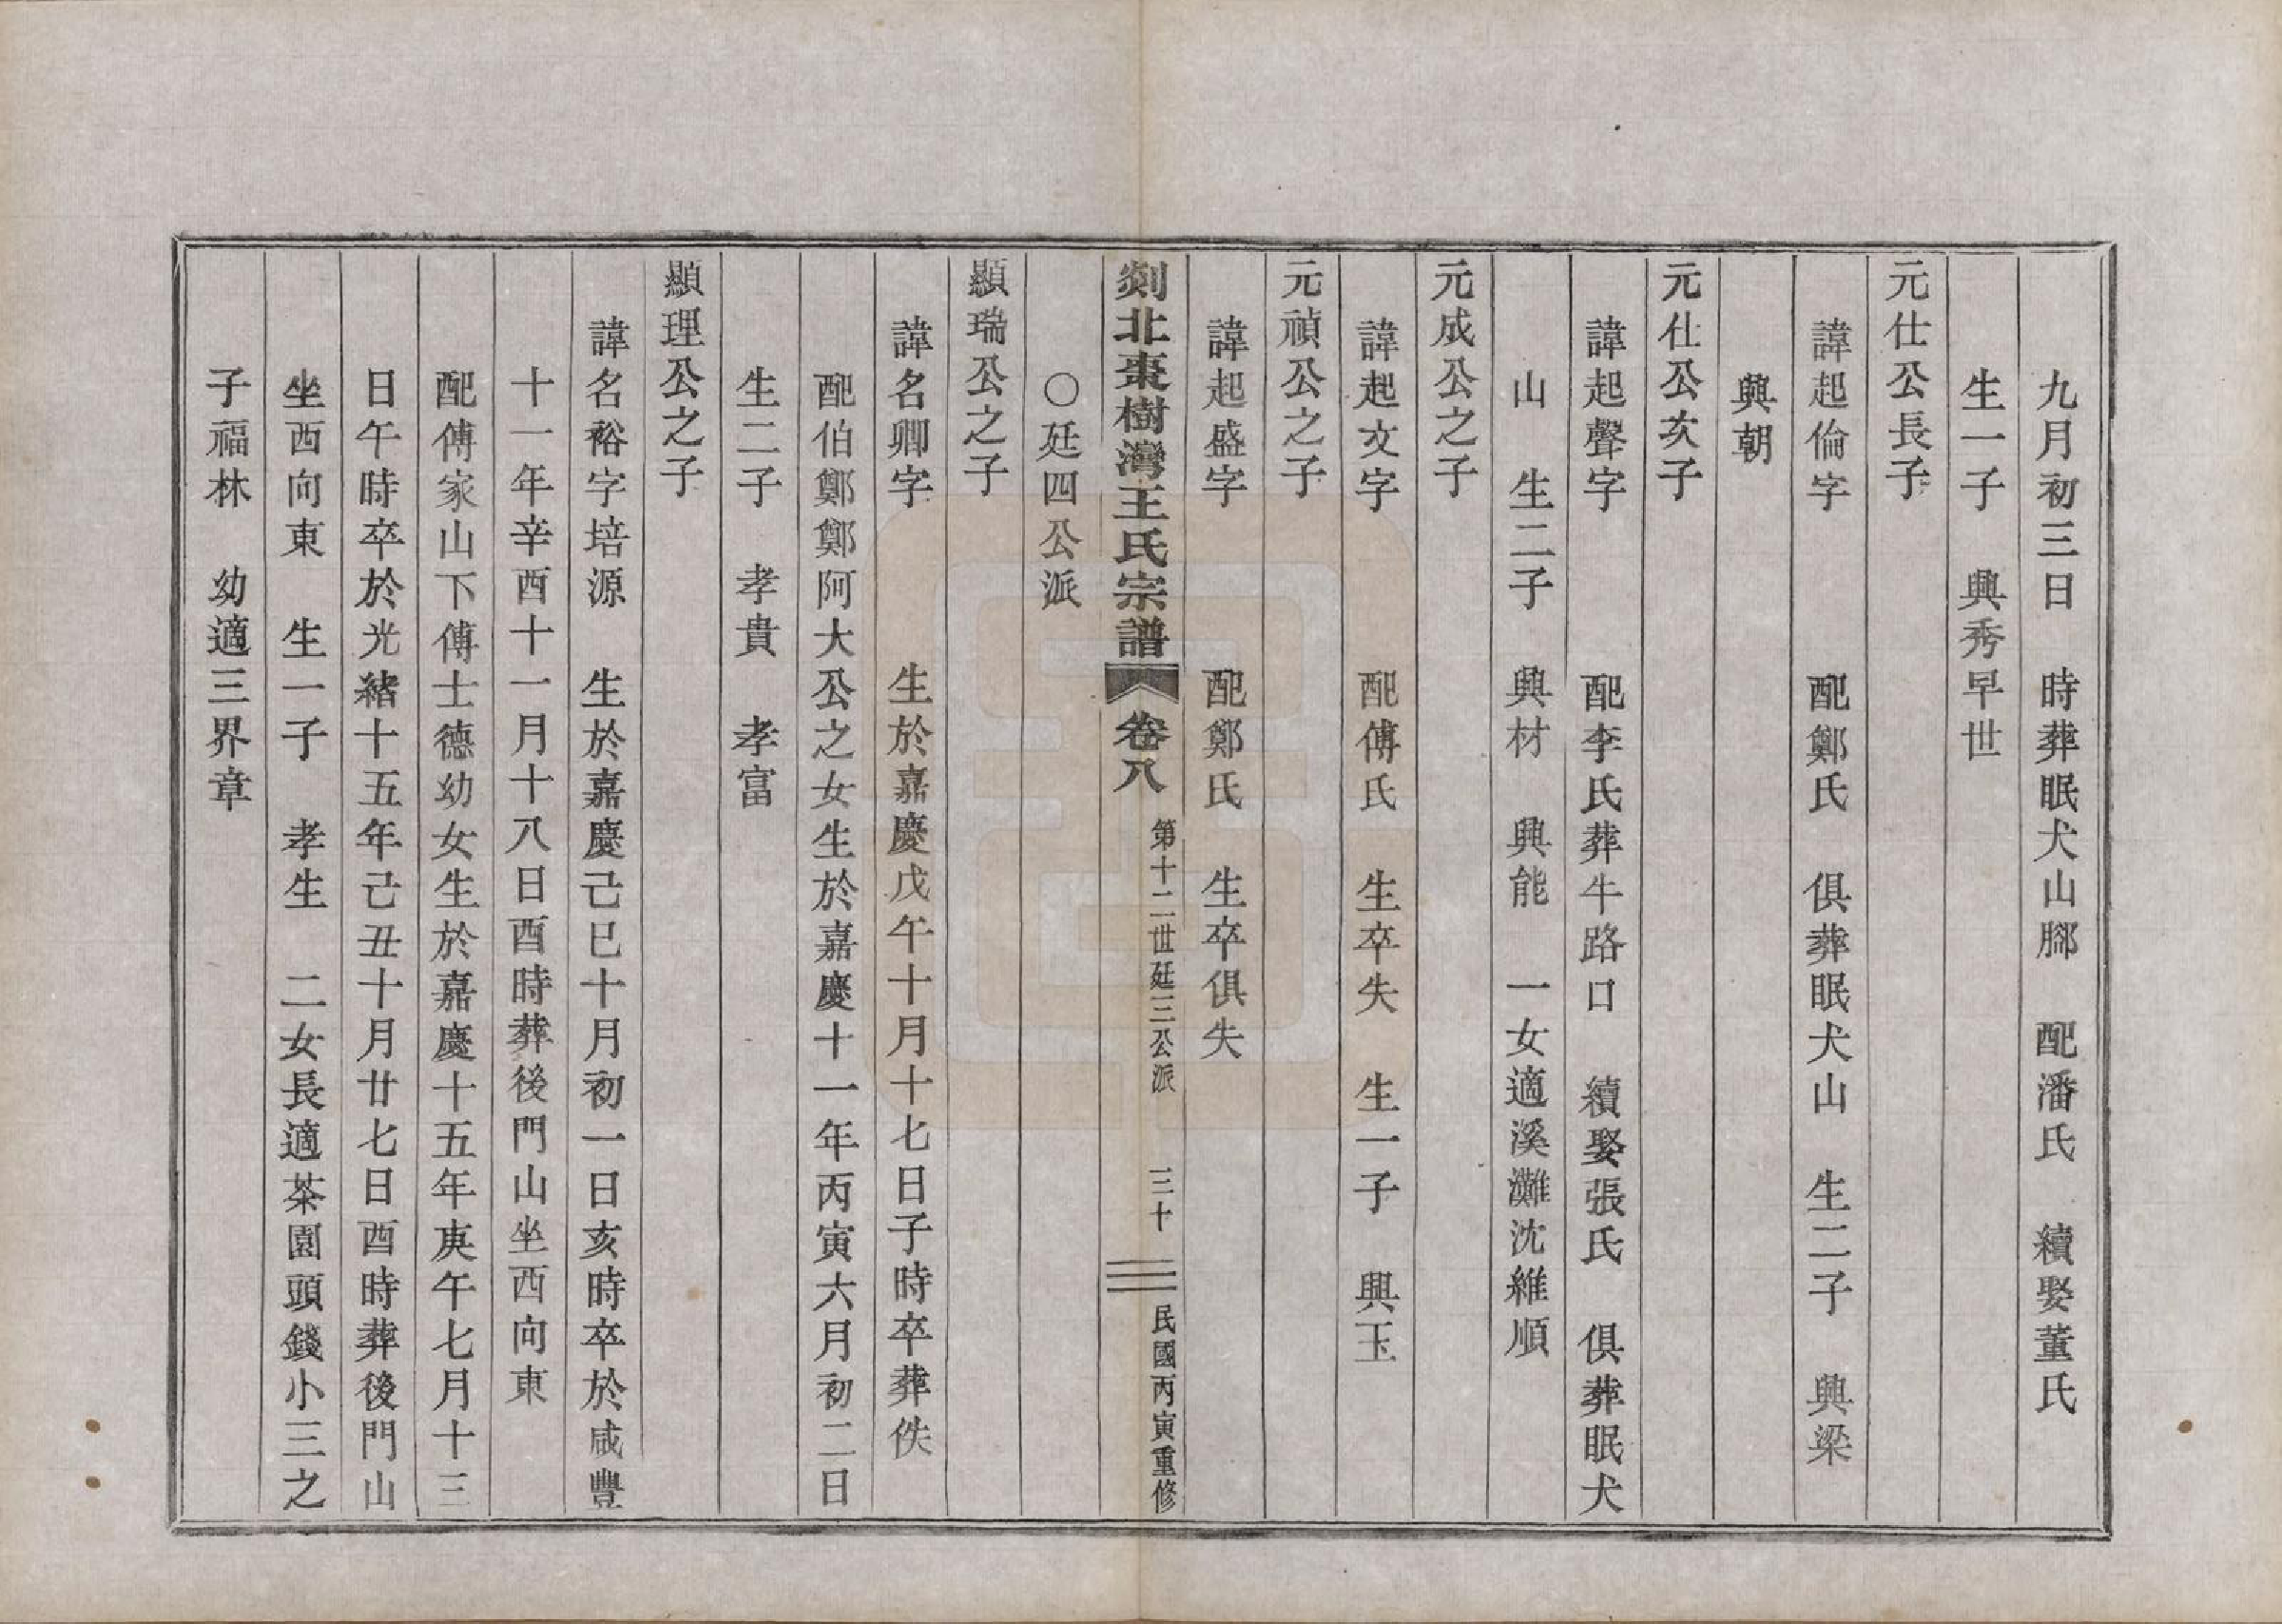 九月初三日　時葬眠犬山腳　配潘氏　續娶董氏
生一子　興秀早世
元仕公長子
諱起倫字　配鄭氏　俱葬眠犬山　生二子　興梁
興朝
元仕公次子
諱起聲字　配李氏葬牛路口　續娶張氏　俱葬眠犬
山　生二子　興材　興能　一女適溪灘沈維順
元成公之子
諱起文字　配傅氏　生卒失　生一子　興玉
元禎公之子
諱起盛字　配鄭氏　生卒俱失
剡北棗樹灣王氏宗譜　卷八　第十二世廷三公派　三十　民國丙寅重修
〇廷四公派
顯瑞公之子
諱名卿字　生於嘉慶戊午十月十七日子時卒葬佚
配伯鄭鄭阿大公之女生於嘉慶十一年丙寅六月初二日
生二子　孝貴　孝富
顯理公之子
諱名裕字培源　生於嘉慶己巳十月初一日亥時卒於咸豐
十一年辛酉十一月十八日酉時葬後門山坐西向東
配傅家山下傅士德幼女生於嘉慶十五年庚午七月十三
日午時卒於光緒十五年己丑十月廿七日酉時葬後門山
坐西向東　生一子　孝生　二女長適茶園頭錢小三之
子福林　幼適三界章